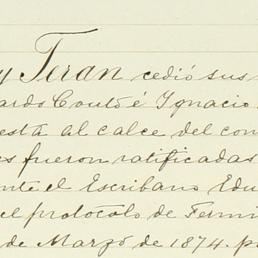 y Teran cedió sus
ardo Couto é Ygnacio
esta al calce del con
s fueron ratificadas
nte el Escribano Edu
el protocolo de Fermi
de Marzo de 1874. p